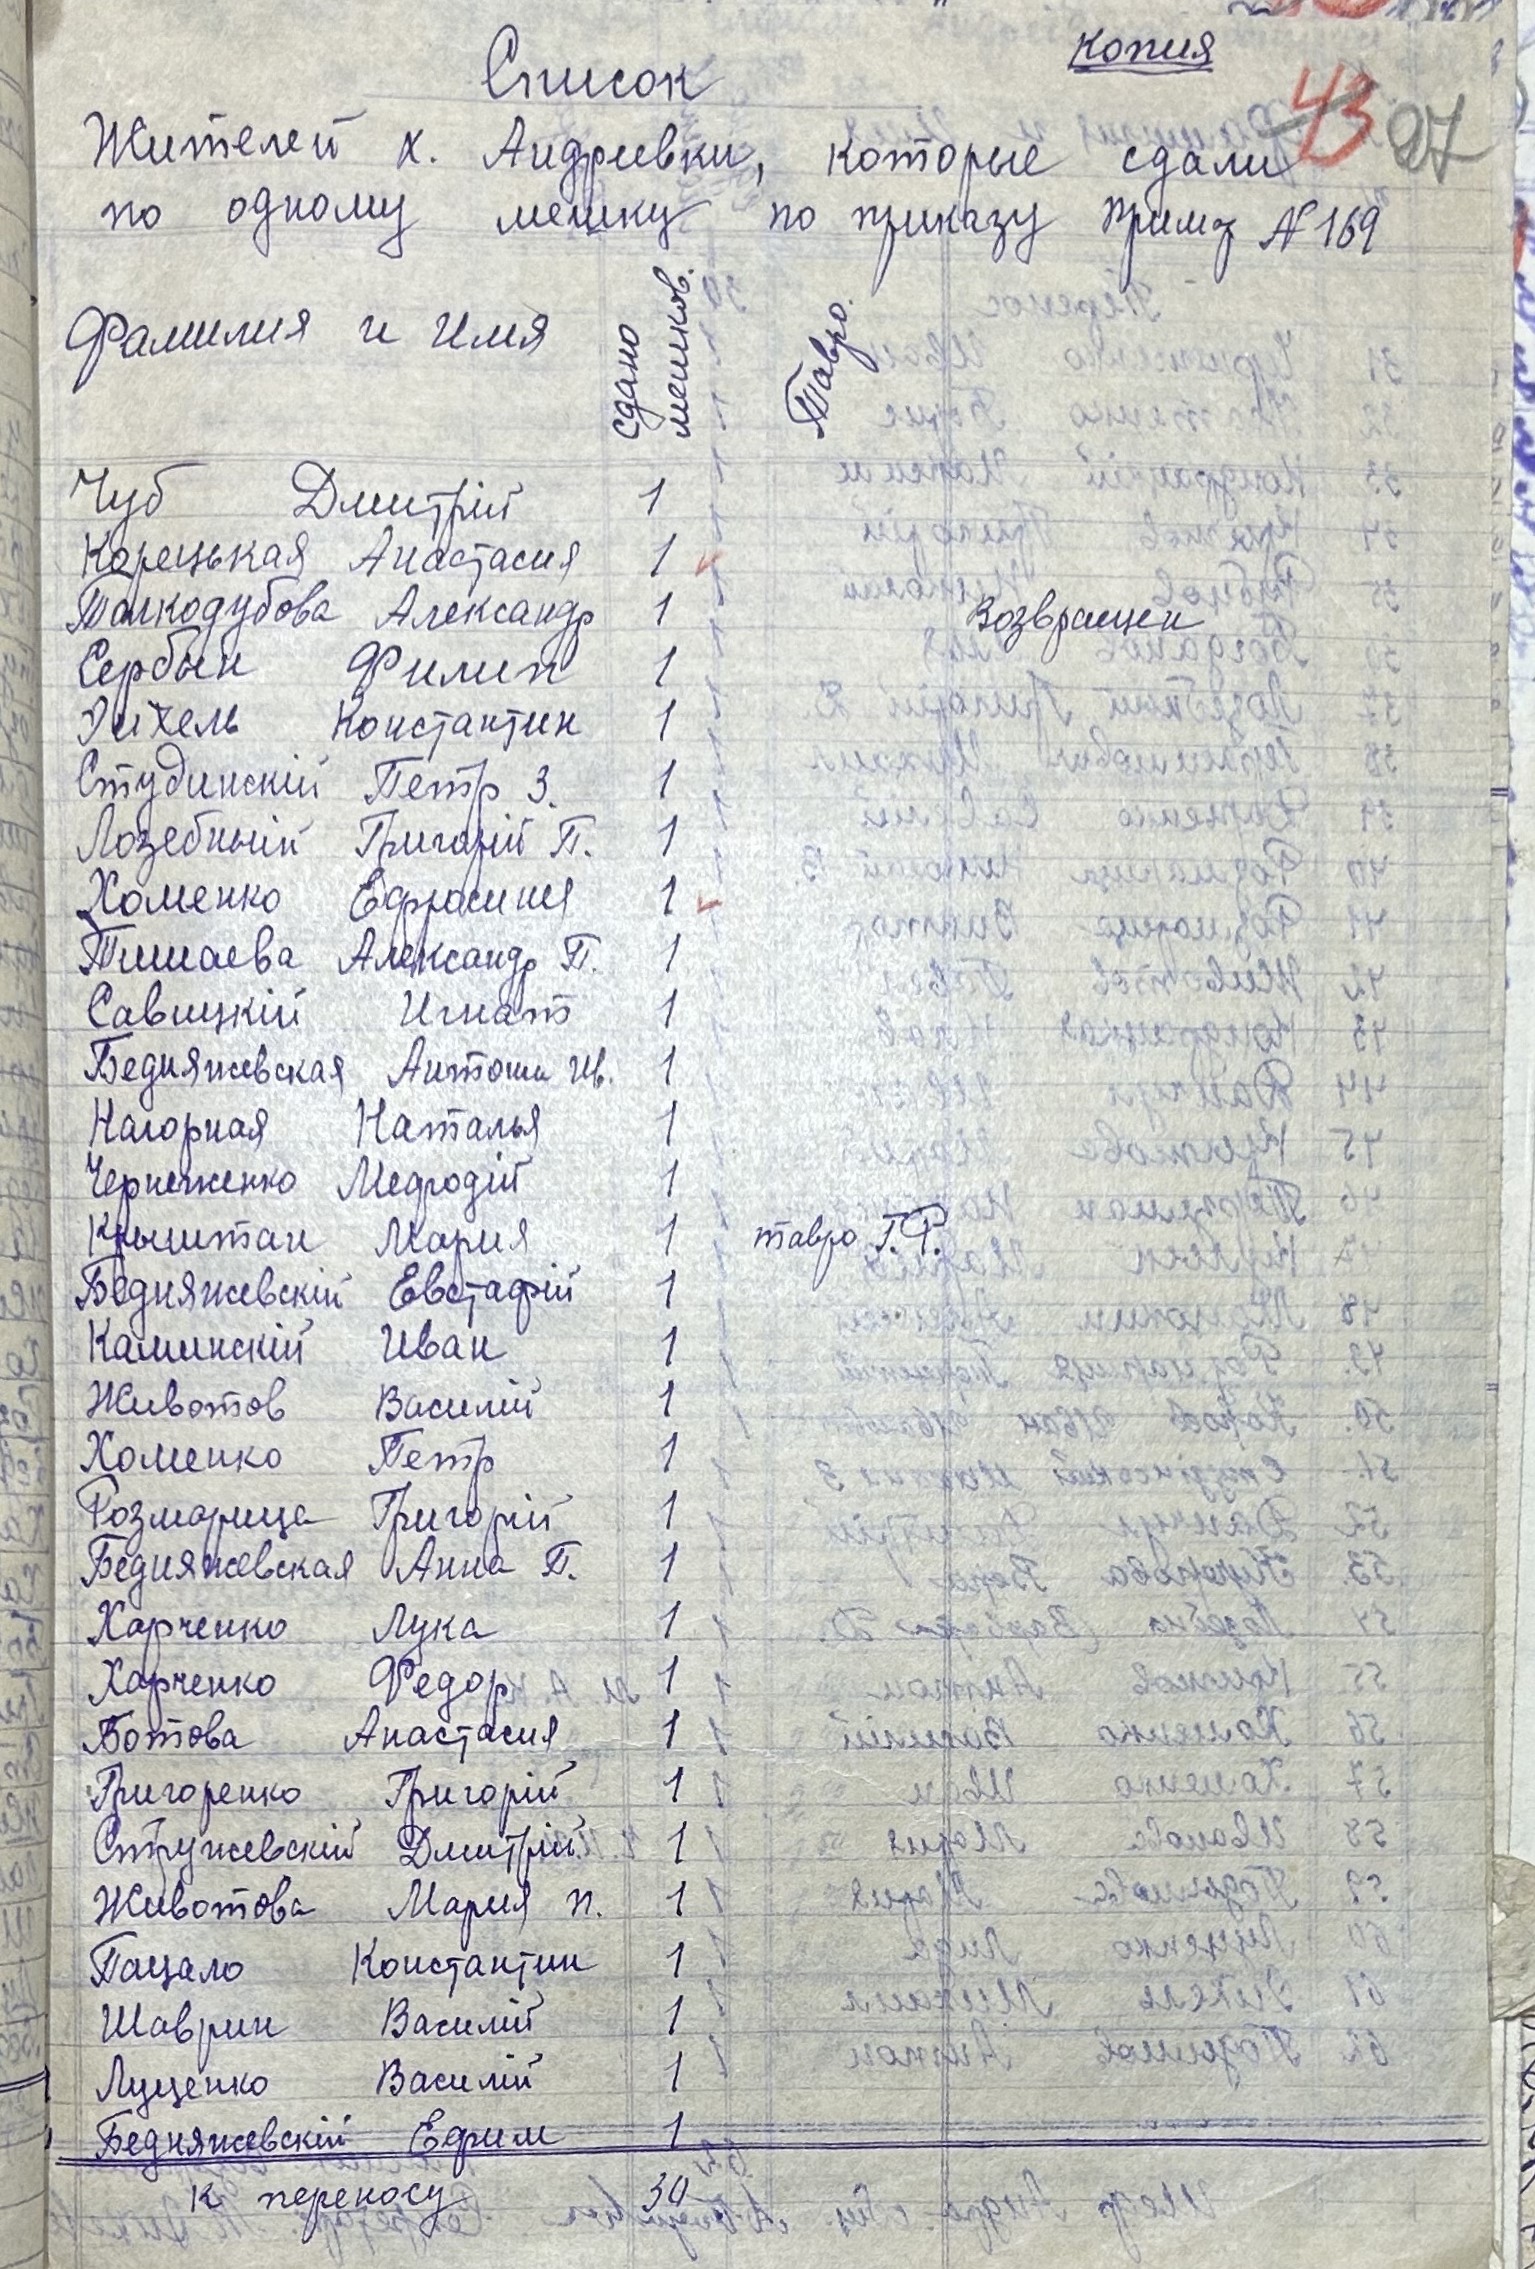 Копия
Список
43 97
Жителей х. Андревки, которые сдали
по одному мешку по приказу Прим№ 169
Фамилия и Имя сдано мешков. Тавро.
Чуб Дмитрій 1
Корецькая Анастасия 1
Толкодубова Александр 1 Возвращен
Сербын Филип 1
Эйхель Константин 1
Студинскій Петр З. 1
Лозебный Григорій П. 1
Хоменко Ефросиния 1
Тишаева Александр П. 1
Савицкій Игнат 1
Бедняжевская Антоши Ив. 1
Нагорная Наталья 1
Черненженко Мефодій 1
Крыштан Мария 1 тавро Г.Р.
Бедняжевскій Евстафій 1
Каминскій Иван 1
Животов Василій 1
Хоменко Петр 1
Розмарица Григорій 1
Бедняжевская Анна П. 1
Харченко Лука 1
Харченко Федор 1
Ботова Анастасия 1
Григоренко Григорій 1
Стружевскій Дмитрій 1
Животова Мария п. 1
Пацало Константин 1
Шаврин Василій 1
Луценко Василій 1
Бедняжевскій Ефим 1
К переносу 30